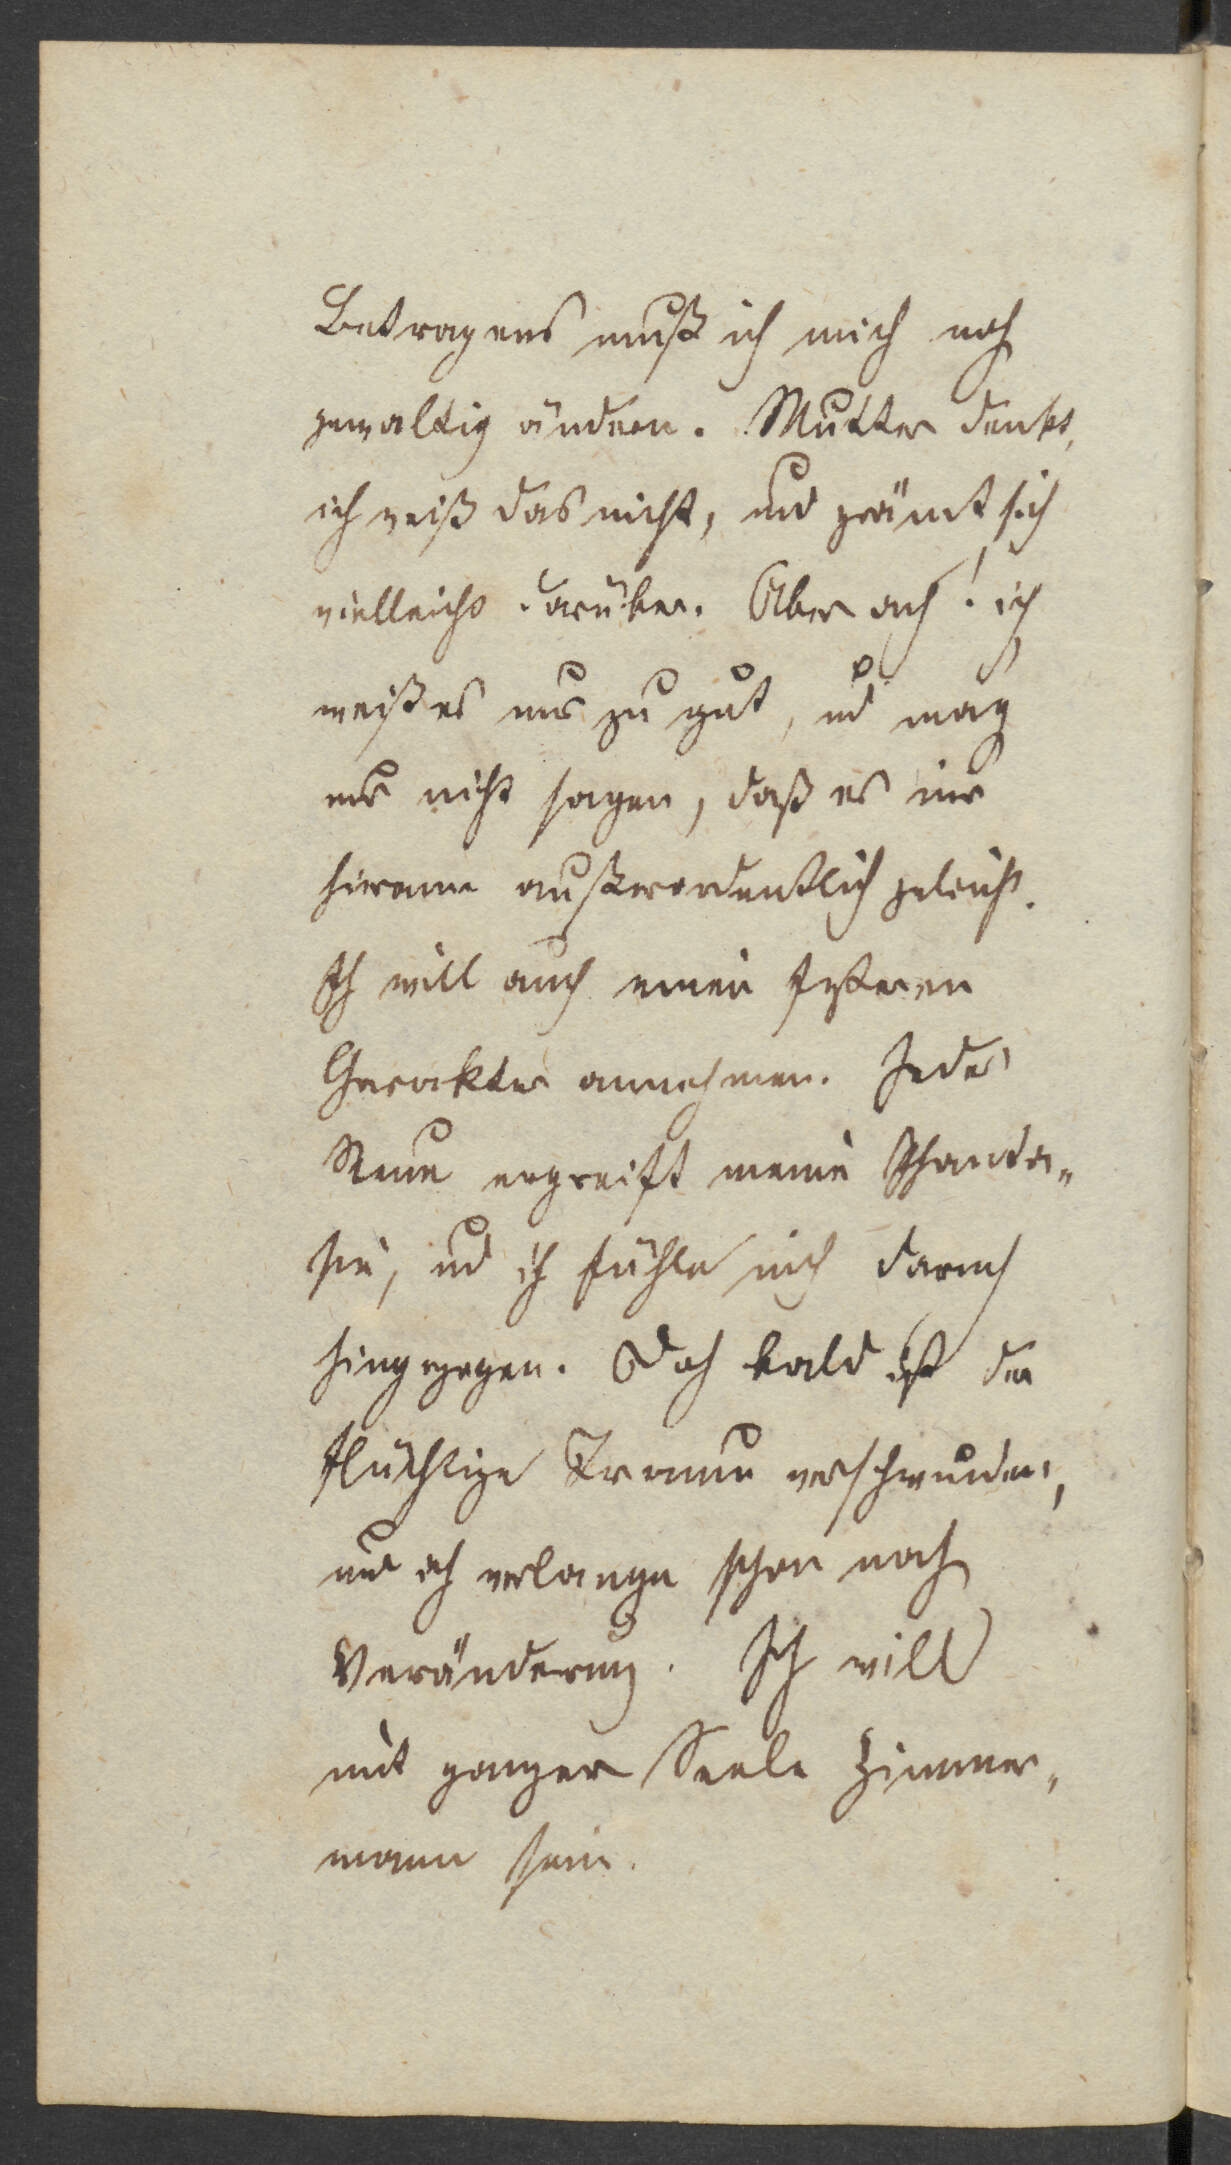 Betragens muß ich mich noch
gewaltig ändern. Mutter denkt,
ich weiß das nicht, und grämt sich
vielleicht darüber. Aber ach! ich
weiß es nur zu gut, und mag
nur nicht sagen, daß es mir
hieran außerordentlich gebricht.
Ich will auch einen festeren
Charakter annehmen. Jedes
Neue ergreift meine Phanta„
sie, und ich fühle mich darnach
hingezogen. Doch bald ist der
flüchtige Traum verschwunden,
und ich verlange schon nach
Veränderung. Ich will
mit ganzer Seele Zimmer„
mann sein.